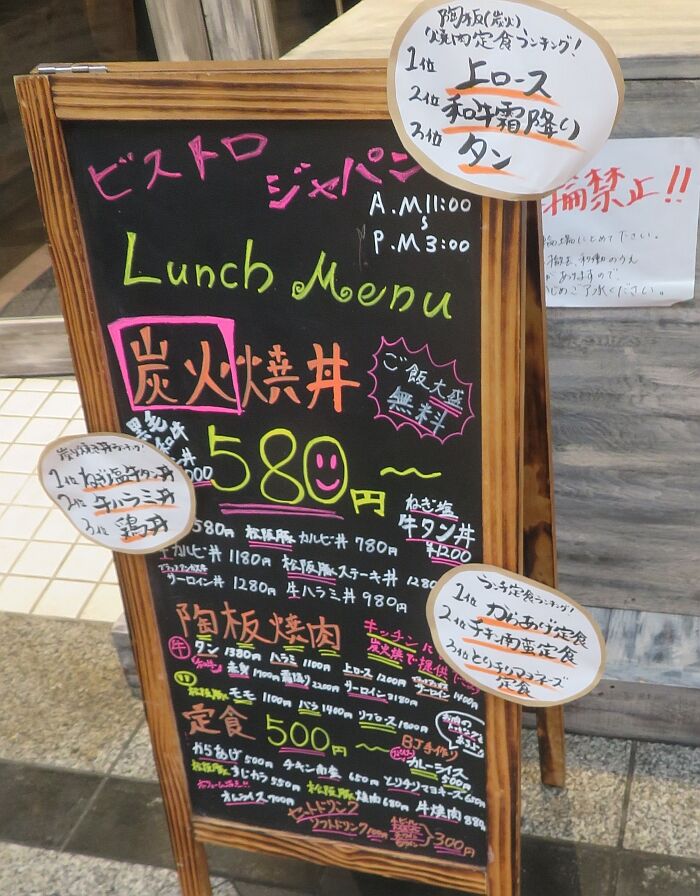 陶板(炭火)
焼肉定食ランキング!
1位 上ロース
2位 和牛霜降り
3位 タン
ビストロ
ジャパン
A.M 11:00
~
P.M 3:00
Lunch Menu
炭火焼丼
ご飯大盛
無料
580円~
ねぎ塩
牛タン丼
¥1200
炭火焼丼ランキング!
1位 ねぎ塩牛タン丼
2位 牛ハラミ丼
3位 鶏丼
580円 松阪豚カルビ丼 780円
カルビ丼 1180円 松阪豚ステーキ丼 1280
サーロイン丼 1280円 牛ハラミ丼 980円
ランチ定食ランキング!
1位 からあげ定食
2位 チキン南蛮定食
3位 とりチリマヨネーズ
定食
陶板焼肉
キッチンに
炭火焼で提供
牛 タン 1380円 ハラミ 1100円 上ロース 1200円 1400円
赤身 1700円 霜降り 2200円 サーロイン 3180円
松阪豚 モモ 1100円 バラ 1400円 リブロース 1800円
定食 500円~
BJ手作り
カレーライス
500円
からあげ 500円 チキン南蛮 650円 とりチリマヨネーズ 650円
松阪豚すじカラ 550円 松阪豚焼肉 680円 牛焼肉 880円
オムライス 700円
セットドリンク
ソフトドリンク 100円
300円
輪禁止!!
輪場にとめて下さい。
ご了承ください。